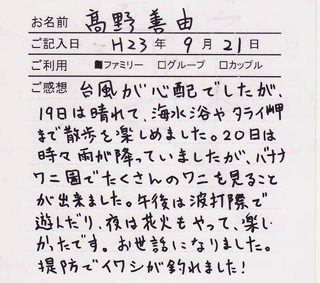 お名前 髙野善由
ご記入日 H23年9月21日
ご利用 ■ファミリー □グループ □カップル
ご感想 台風が心配でしたが、
19日は晴れて、海水浴やタライ岬
まで散歩を楽しめました。20日は
時々雨が降っていましたが、バナナ
ワニ園でたくさんのワニを見ること
が出来ました。午後は波打際で
遊んだり、夜は花火もやって、楽し
かったです。お世話になりました。
堤防でイワシが釣れました!